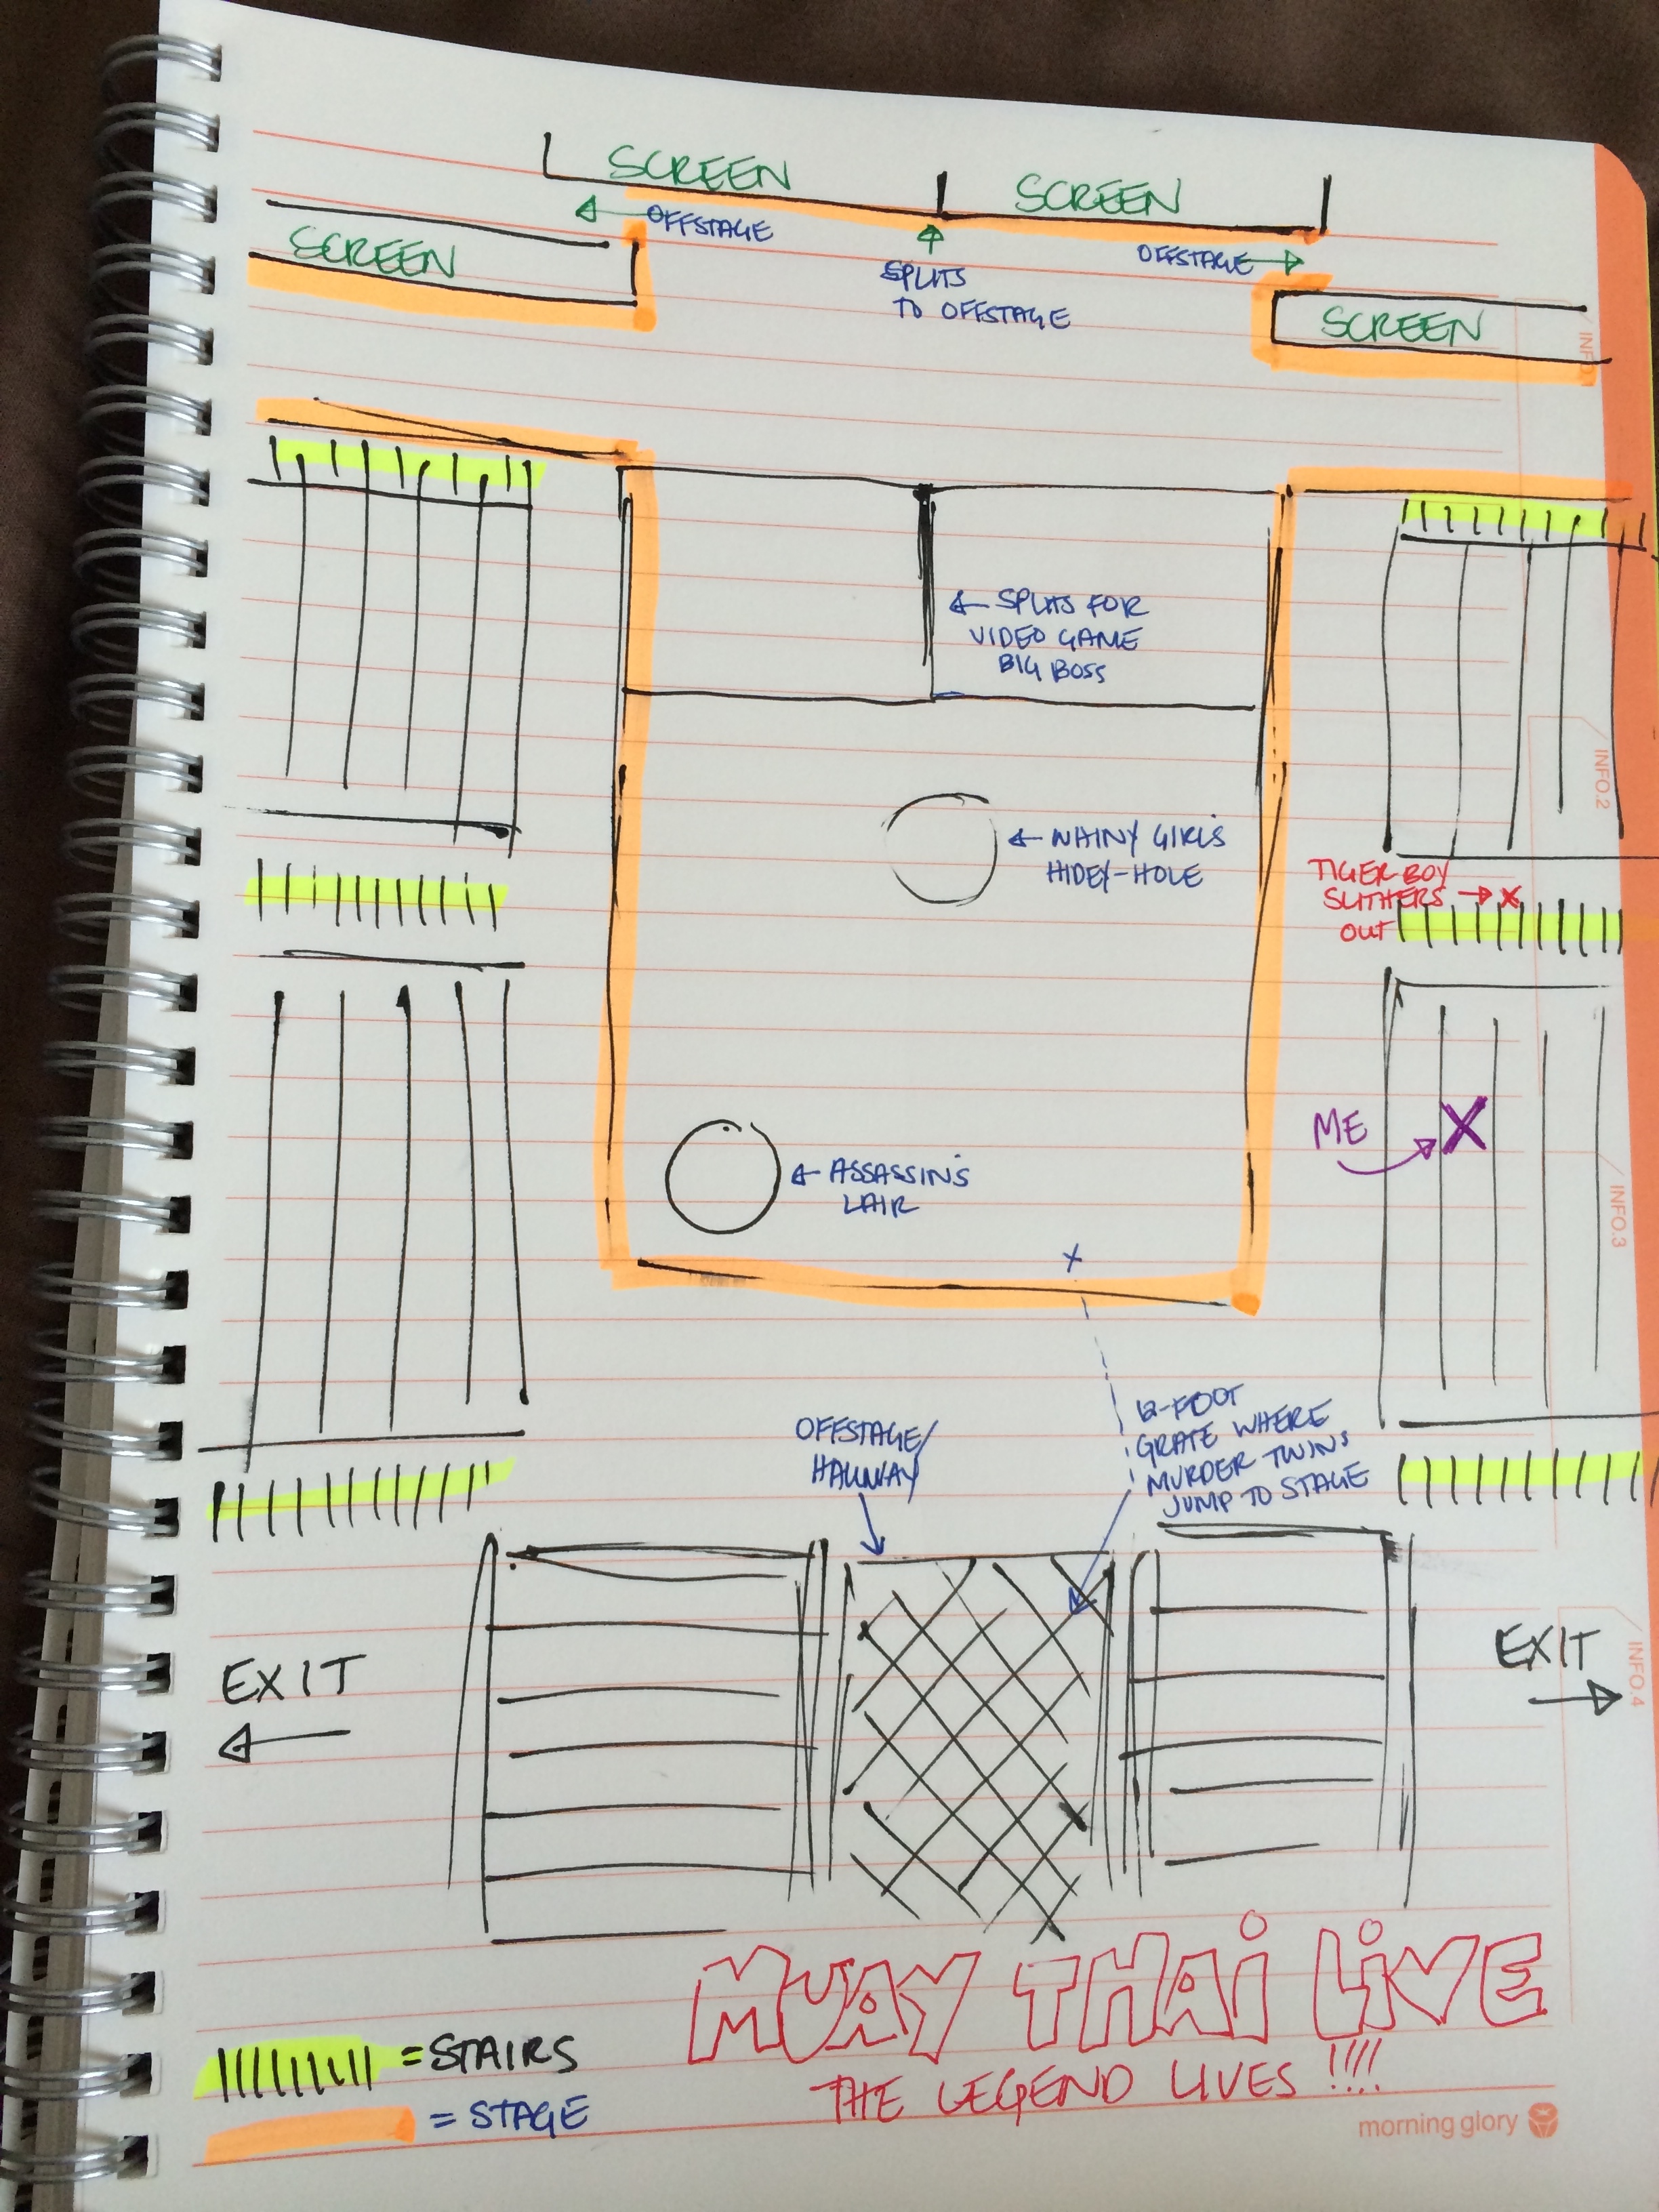 SCREEN
SCREEN
← OFFSTAGE
OFFSTAGE →
SCREEN
SPLITS
TO OFFSTAGE
SCREEN
INFO.1
← SPLITS FOR
VIDEO GAME
BIG BOSS
INFO.2
← WHINY GIRL'S
HIDEY-HOLE
TIGER BOY
SLITHERS → X
OUT
ME
X
← ASSASSIN'S
LAIR
INFO.3
X
OFFSTAGE/
HALLWAY
12-FOOT
GRATE WHERE
MURDER TWINS
JUMP TO STAGE
EXIT
←
EXIT
→
INFO.4
MUAY THAI LIVE
THE LEGEND LIVES !!!!
= STAIRS
= STAGE
morning glory